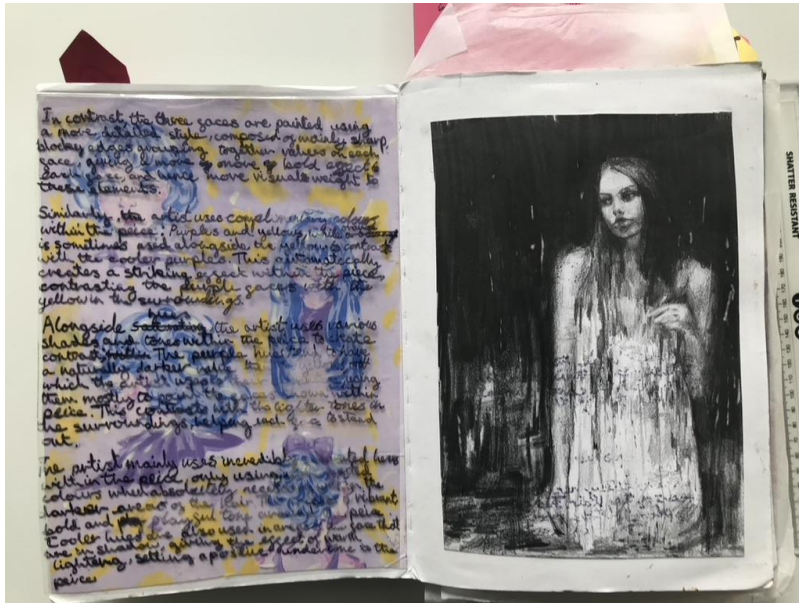 In contrast, the three faces are painted using
a more detailed style, composed of mainly sharp,
blocky edges grouping together values on each
face, giving a more bold effect to
each face, and hence more visual weight to
these elements.
Similarly, the artist uses complimentary colours
within the peice. Purples and yellow, which
is sometimes used alongside the yellow to contrast
with the cooler purples. This automatically
creates a striking effect within the piece,
contrasting the purple faces with the
yellow in the surroundings.
Alongside hue, the artist uses various
shades and tones within the piece to create
contrast. The purple hues tend to have
a naturally darker value
which the artist
them mostly to shown within
peice. This contrasts with the lighter tones in
the surroundings helping each face to stand
out.
The artist mainly uses incredibly hues
within the peice, only using
colours when absolutely the
darker areas of the vibrant
bold and peice
Cooler hues are also used in areas of face that
are in shadow, giving the effect of warm
lighting, setting a positive undertone to the
peice
SHATTER RESISTANT